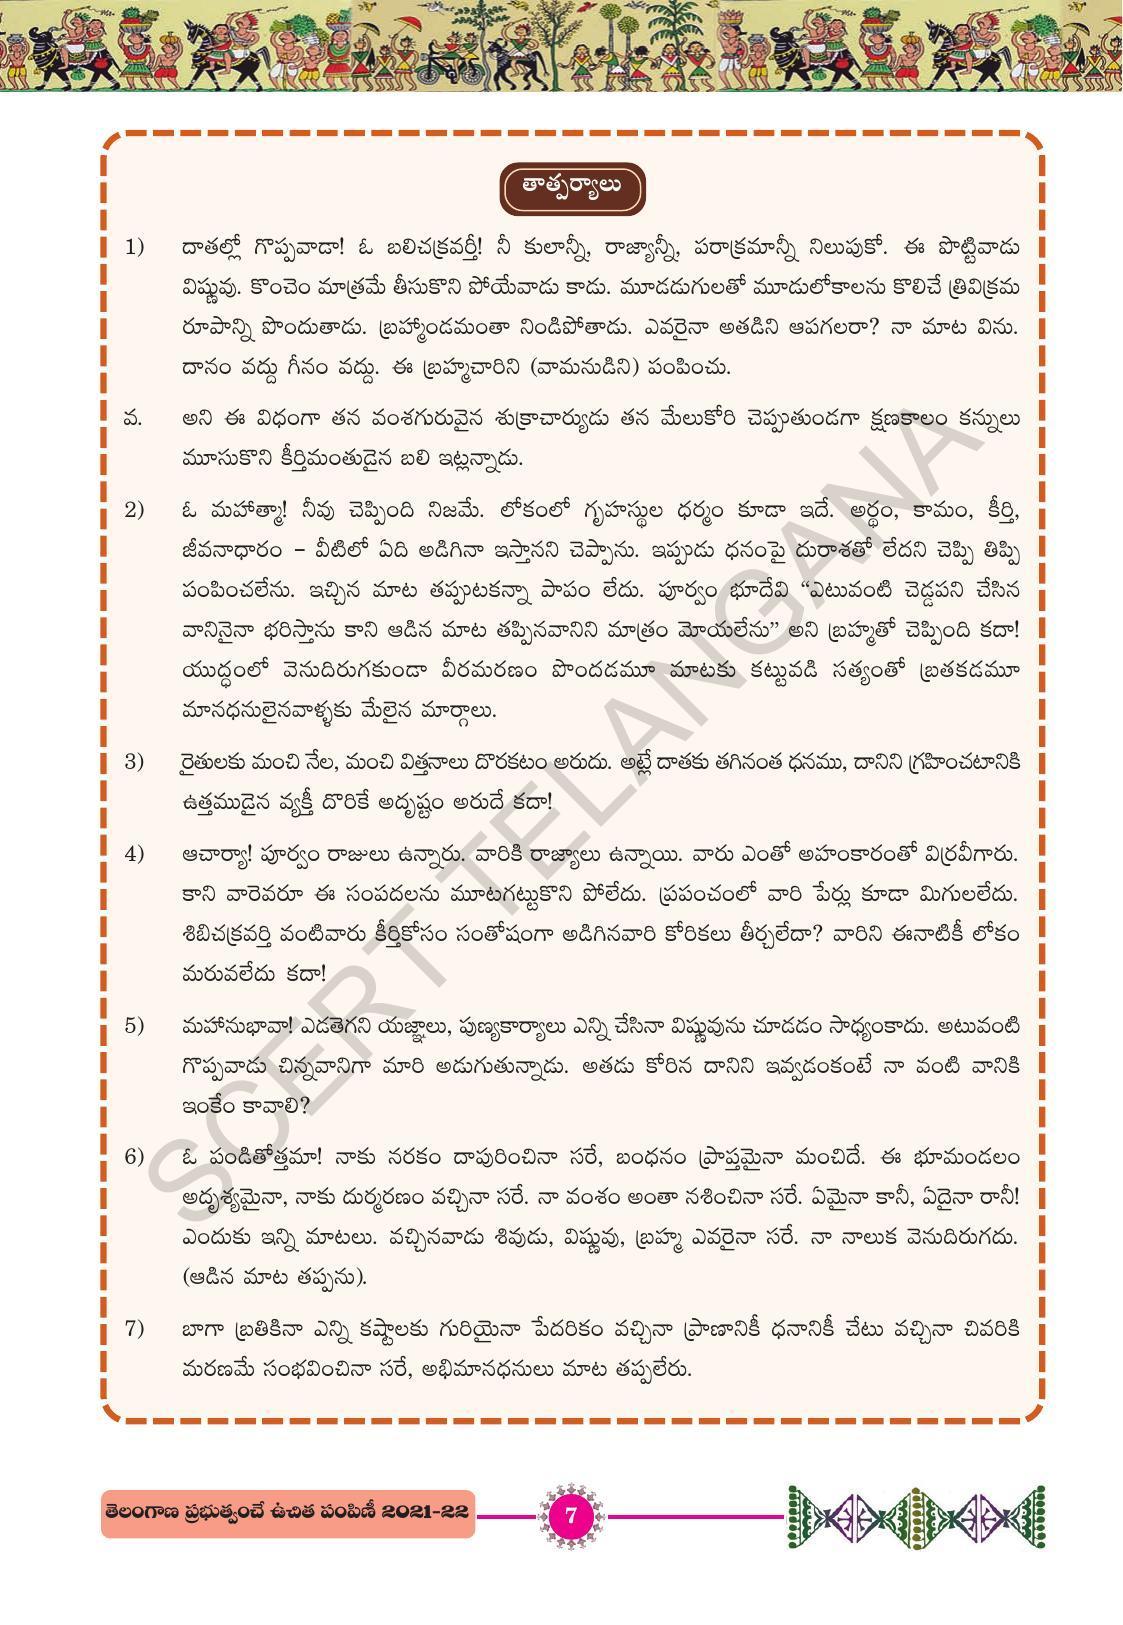 తాత్పర్యాలు
1) దాతల్లో గొప్పవాడా! ఓ బలిచక్రవర్తీ! నీ కులాన్నీ, రాజ్యాన్నీ, పరాక్రమాన్నీ నిలుపుకో. ఈ పొట్టివాడు
విష్ణువు. కొంచెం మాత్రమే తీసుకొని పోయేవాడు కాదు. మూడడుగులతో మూడులోకాలను కొలిచే త్రివిక్రమ
రూపాన్ని పొందుతాడు. బ్రహ్మాండమంతా నిండిపోతాడు. ఎవరైనా అతడిని ఆపగలరా? నా మాట విను.
దానం వద్దు గీనం వద్దు. ఈ బ్రహ్మచారిని (వామనుడిని) పంపించు.
వ. అని ఈ విధంగా తన వంశగురువైన శుక్రాచార్యుడు తన మేలుకోరి చెప్పుతుండగా క్షణకాలం కన్నులు
మూసుకొని కీర్తిమంతుడైన బలి ఇట్లన్నాడు.
2) ఓ మహాత్మా! నీవు చెప్పింది నిజమే. లోకంలో గృహస్థుల ధర్మం కూడా ఇదే. అర్థం, కామం, కీర్తి,
జీవనాధారం – వీటిలో ఏది అడిగినా ఇస్తానని చెప్పాను. ఇప్పుడు ధనంపై దురాశతో లేదని చెప్పి తిప్పి
పంపించలేను. ఇచ్చిన మాట తప్పుటకన్నా పాపం లేదు. పూర్వం భూదేవి “ఎటువంటి చెడ్డపని చేసిన
వానినైనా భరిస్తాను కాని ఆడిన మాట తప్పినవానిని మాత్రం మోయలేను” అని బ్రహ్మతో చెప్పింది కదా!
యుద్ధంలో వెనుదిరుగకుండా వీరమరణం పొందడమూ మాటకు కట్టువడి సత్యంతో బ్రతకడమూ
మానధనులైనవాళ్ళకు మేలైన మార్గాలు.
3) రైతులకు మంచి నేల, మంచి విత్తనాలు దొరకటం అరుదు. అట్లే దాతకు తగినంత ధనము, దానిని గ్రహించటానికి
ఉత్తముడైన వ్యక్తీ దొరికే అదృష్టం అరుదే కదా!
4) ఆచార్యా! పూర్వం రాజులు ఉన్నారు. వారికి రాజ్యాలు ఉన్నాయి. వారు ఎంతో అహంకారంతో విర్రవీగారు.
కాని వారెవరూ ఈ సంపదలను మూటగట్టుకొని పోలేదు. ప్రపంచంలో వారి పేర్లు కూడా మిగులలేదు.
శిబిచక్రవర్తి వంటివారు కీర్తికోసం సంతోషంగా అడిగినవారి కోరికలు తీర్చలేదా? వారిని ఈనాటికీ లోకం
మరువలేదు కదా!
5) మహానుభావా! ఎడతెగని యజ్ఞాలు, పుణ్యకార్యాలు ఎన్ని చేసినా విష్ణువును చూడడం సాధ్యంకాదు. అటువంటి
గొప్పవాడు చిన్నవానిగా మారి అడుగుతున్నాడు. అతడు కోరిన దానిని ఇవ్వడంకంటే నా వంటి వానికి
ఇంకేం కావాలి?
6) ఓ పండితోత్తమా! నాకు నరకం దాపురించినా సరే, బంధనం ప్రాప్తమైనా మంచిదే. ఈ భూమండలం
అదృశ్యమైనా, నాకు దుర్మరణం వచ్చినా సరే. నా వంశం అంతా నశించినా సరే. ఏమైనా కానీ, ఏదైనా రానీ!
ఎందుకు ఇన్ని మాటలు. వచ్చినవాడు శివుడు, విష్ణువు, బ్రహ్మ ఎవరైనా సరే. నా నాలుక వెనుదిరుగదు.
(ఆడిన మాట తప్పను).
7) బాగా బ్రతికినా ఎన్ని కష్టాలకు గురియైనా పేదరికం వచ్చినా ప్రాణానికీ ధనానికీ చేటు వచ్చినా చివరికి
మరణమే సంభవించినా సరే, అభిమానధనులు మాట తప్పలేరు.
SCERT TELANGANA
తెలంగాణ ప్రభుత్వంచే ఉచిత పంపిణీ 2021-22
7